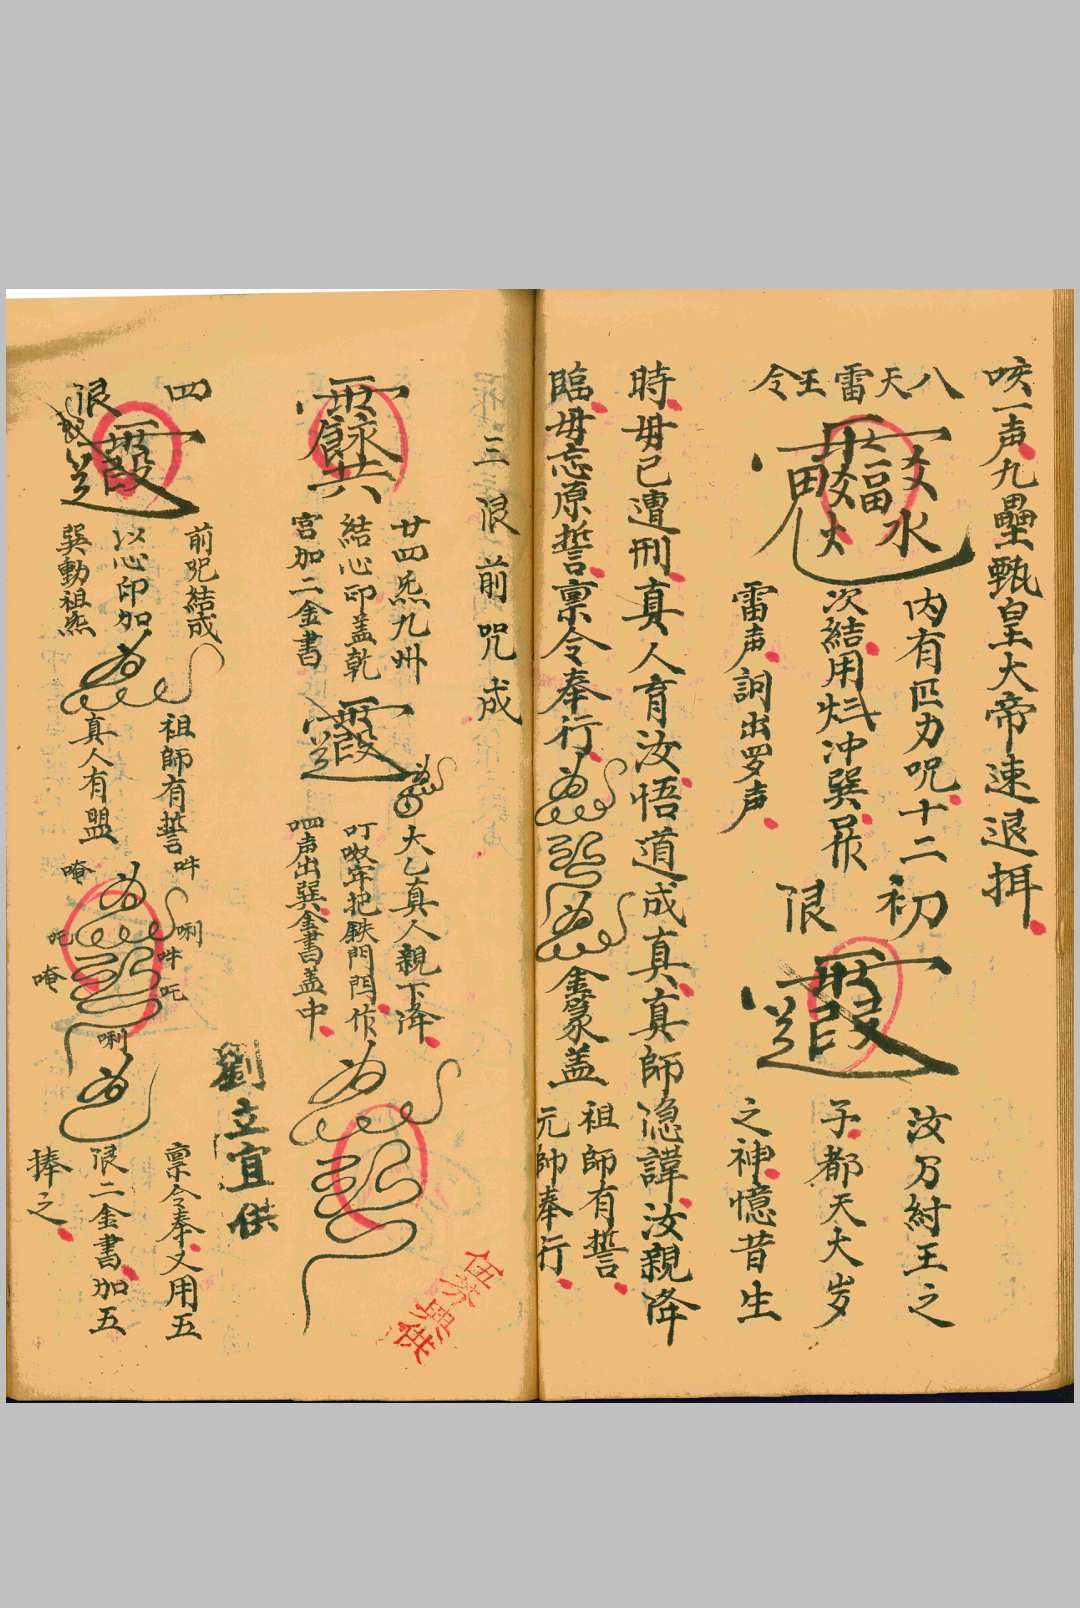 咳一声九壘甄皇大帝速退揖
八天雷王令
水
火
内有四力咒十二
次結用 冲巽
雷声詞出罗声
初限
汝乃紂王之
子都天大岁
之神憶昔生
時毋已遭刑真人育汝悟道成真真師隐諱汝親降
臨毋忘原誓禀令奉行
金篆盖
祖師有誓
元帥奉行
三限前咒成
廿四炁九州
結心印盖乾
宮加二金書
大乙真人親下降
年把鉄門閂作
四声出巽金書盖中
劉立宜供
四限
前咒結成
以心印加
巽動祖炁
祖師有誓
真人有盟
吽
唵
唎
吽
吒
吒
唵
唎
禀令奉又用五
限二金書加五
捧之